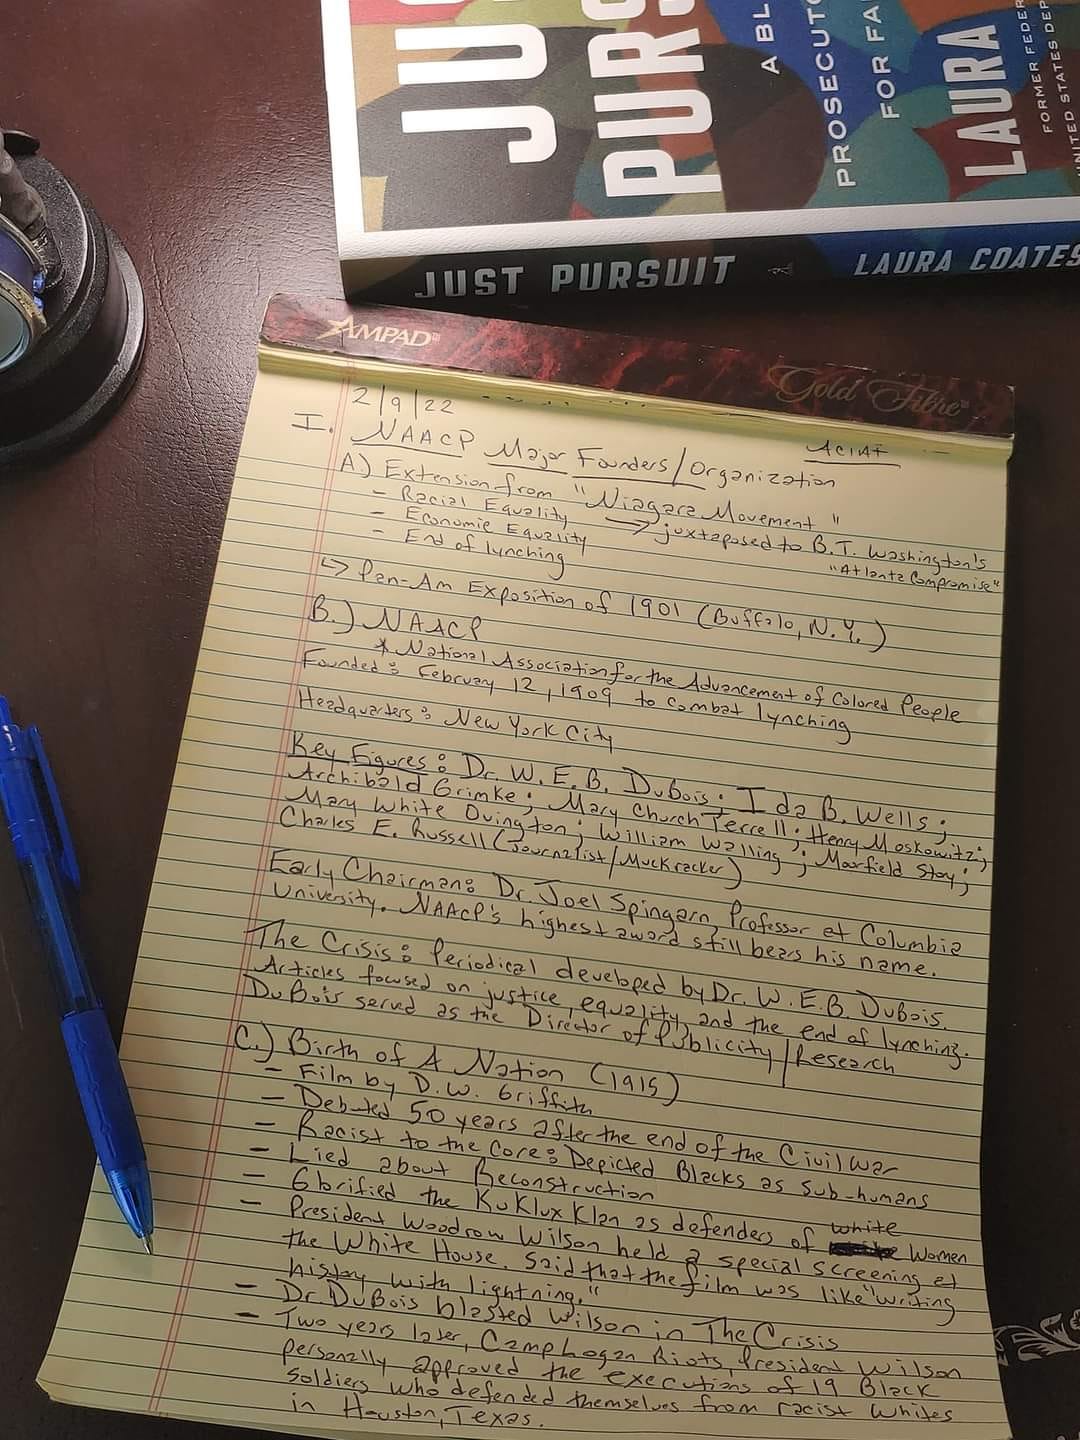 JUS
PURS
A BL
PROSECUTO
FOR FA
LAURA
FORMER FEDER
UNITED STATES DEP
JUST PURSUIT
LAURA COATES
AMPAD
Gold Fibre
2/9/22
ACIAF
I. NAACP Major Founders/Organization
A.) Extension from "Niagara Movement"
- Racial Equality
- Economic Equality
- End of lynching
→ juxtaposed to B.T. Washington's
"Atlanta Compromise"
↳ Pan-Am Exposition of 1901 (Buffalo, N.Y.)
B.) NAACP
* National Association for the Advancement of Colored People
Founded: February 12, 1909 to combat lynching
Headquarters: New York City
Key Figures: Dr. W.E.B. DuBois; Ida B. Wells;
Archibald Grimke; Mary Church Terrell; Henry Moskowitz;
Mary White Ovington; William Walling; Moorfield Story;
Charles E. Russell (Journalist/Muckracker)
Early Chairman: Dr. Joel Spingarn, Professor at Columbia
University. NAACP's highest award still bears his name.
The Crisis: Periodical developed by Dr. W.E.B. DuBois.
Articles focused on justice, equality, and the end of lynching.
DuBois served as the Director of Publicity/Research
C.) Birth of A Nation (1915)
- Film by D.W. Griffith
- Debuted 50 years after the end of the Civil War
- Racist to the Core: Depicted Blacks as sub-humans
- Lied about Reconstruction
- Glorified the Ku Klux Klan as defenders of white Women
- President Woodrow Wilson held a special screening at
the White House. Said that the film was like "writing
history with lightning."
- Dr. DuBois blasted Wilson in The Crisis
- Two years later, Camp Logan Riots, President Wilson
personally approved the executions of 19 Black
soldiers who defended themselves from racist Whites
in Houston, Texas.